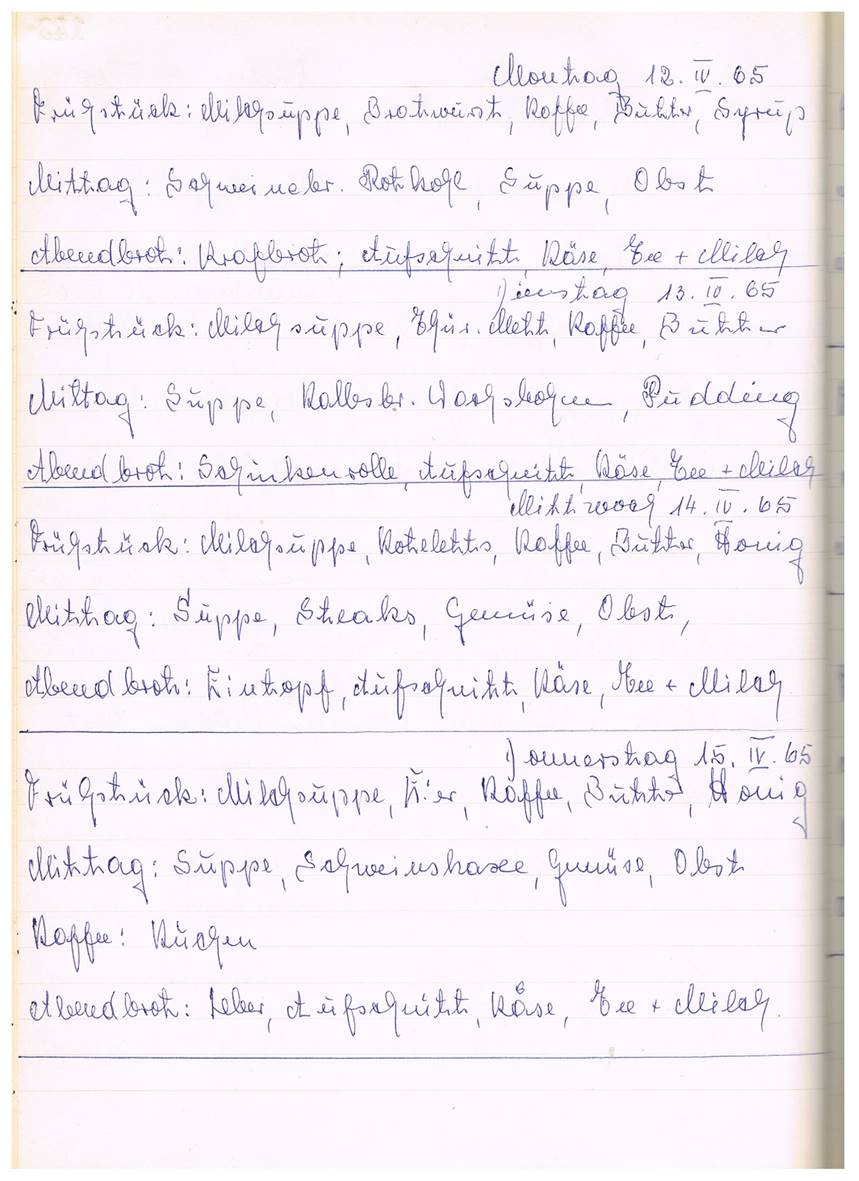 Montag 12. IV. 65
Frühstück: Milchsuppe, Bratwurst, Kaffee, Butter, Syrup
Mittag: Schweinebr. Rotkohl, Suppe, Obst
Abendbrot: Aufschnitt, Käse, Tee + Milch
Dienstag 13. IV. 65
Frühstück: Milchsuppe, Thür. Mett, Kaffee, Butter
Mittag: Suppe, Kalbsbr. Wachsbohnen, Pudding
Abendbrot: Schinkenrolle, Aufschnitt, Käse, Tee + Milch
Mittwoch 14. IV. 65
Frühstück: Milchsuppe, Koteletts, Kaffee, Butter, Honig
Mittag: Suppe, Steaks, Gemüse, Obst,
Abendbrot: Eintopf, Aufschnitt, Käse, Tee + Milch
Donnerstag 15. IV. 65
Frühstück: Milchsuppe, Eier, Kaffee, Butter, Honig
Mittag: Suppe, Schweinshaxe, Gemüse, Obst
Kaffee: Kuchen
Abendbrot: Leber, Aufschnitt, Käse, Tee + Milch.